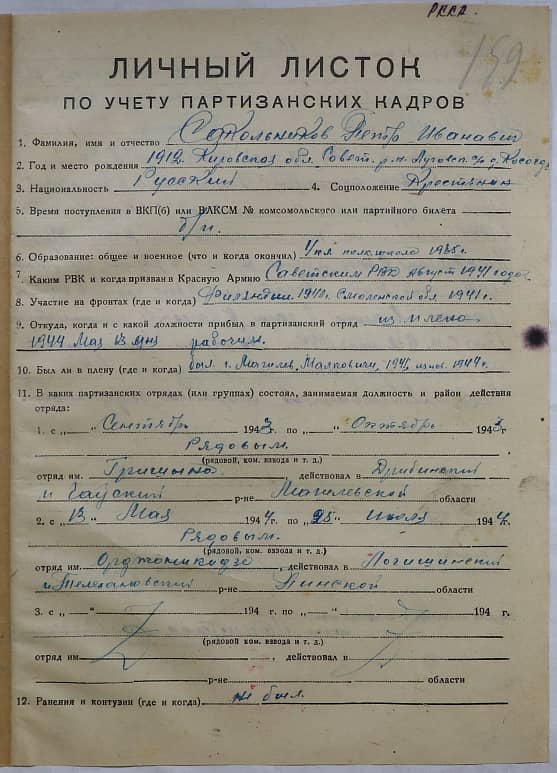 РККА.
159
ЛИЧНЫЙ ЛИСТОК
ПО УЧЕТУ ПАРТИЗАНСКИХ КАДРОВ
1. Фамилия, имя и отчество Сокольников Петр Иванович
2. Год и место рождения 1912. Кировская обл. Совет. р-н
3. Национальность Русский 4. Соцположение Крестьянин
5. Время поступления в ВКП(б) или ВЛКСМ № комсомольского или партийного билета
б/п.
6. Образование: общее и военное (что и когда окончил) 1935г.
7. Каким РВК и когда призван в Красную Армию Советским РВК Август 1941 года
8. Участие на фронтах (где и когда) Финляндии 1940г. Смоленской обл 1941г.
9. Откуда, когда и с какой должности прибыл в партизанский отряд из плена
1944 Мая 13 дня рабочим.
10. Был ли в плену (где и когда) был г. Магилев, 1941, 1944г.
11. В каких партизанских отрядах (или группах) состоял, занимаемая должность и район действия
отряда:
1. с „—“ Сентябрь 1943г. по „—“ Октябрь 1943г
Рядовым.
(рядовой, ком. взвода и т. д.)
отряд им. Гришина действовал в Дрибинский
и р-не Магилевской области
2. с „13“ Мая 1944г. по „25“ Июля 1944г.
Рядовым.
(рядовой, ком. взвода и т. д.)
отряд им. Орджоникидзе, действовал в Логишинский
и Телехановский р-не Пинской области
3. с „—“ 194 г. по „—“ 194 г.
(рядовой ком. взвода и т. д.)
отряд им , действовал в
р-не области
12. Ранения и контузии (где и когда) не был.